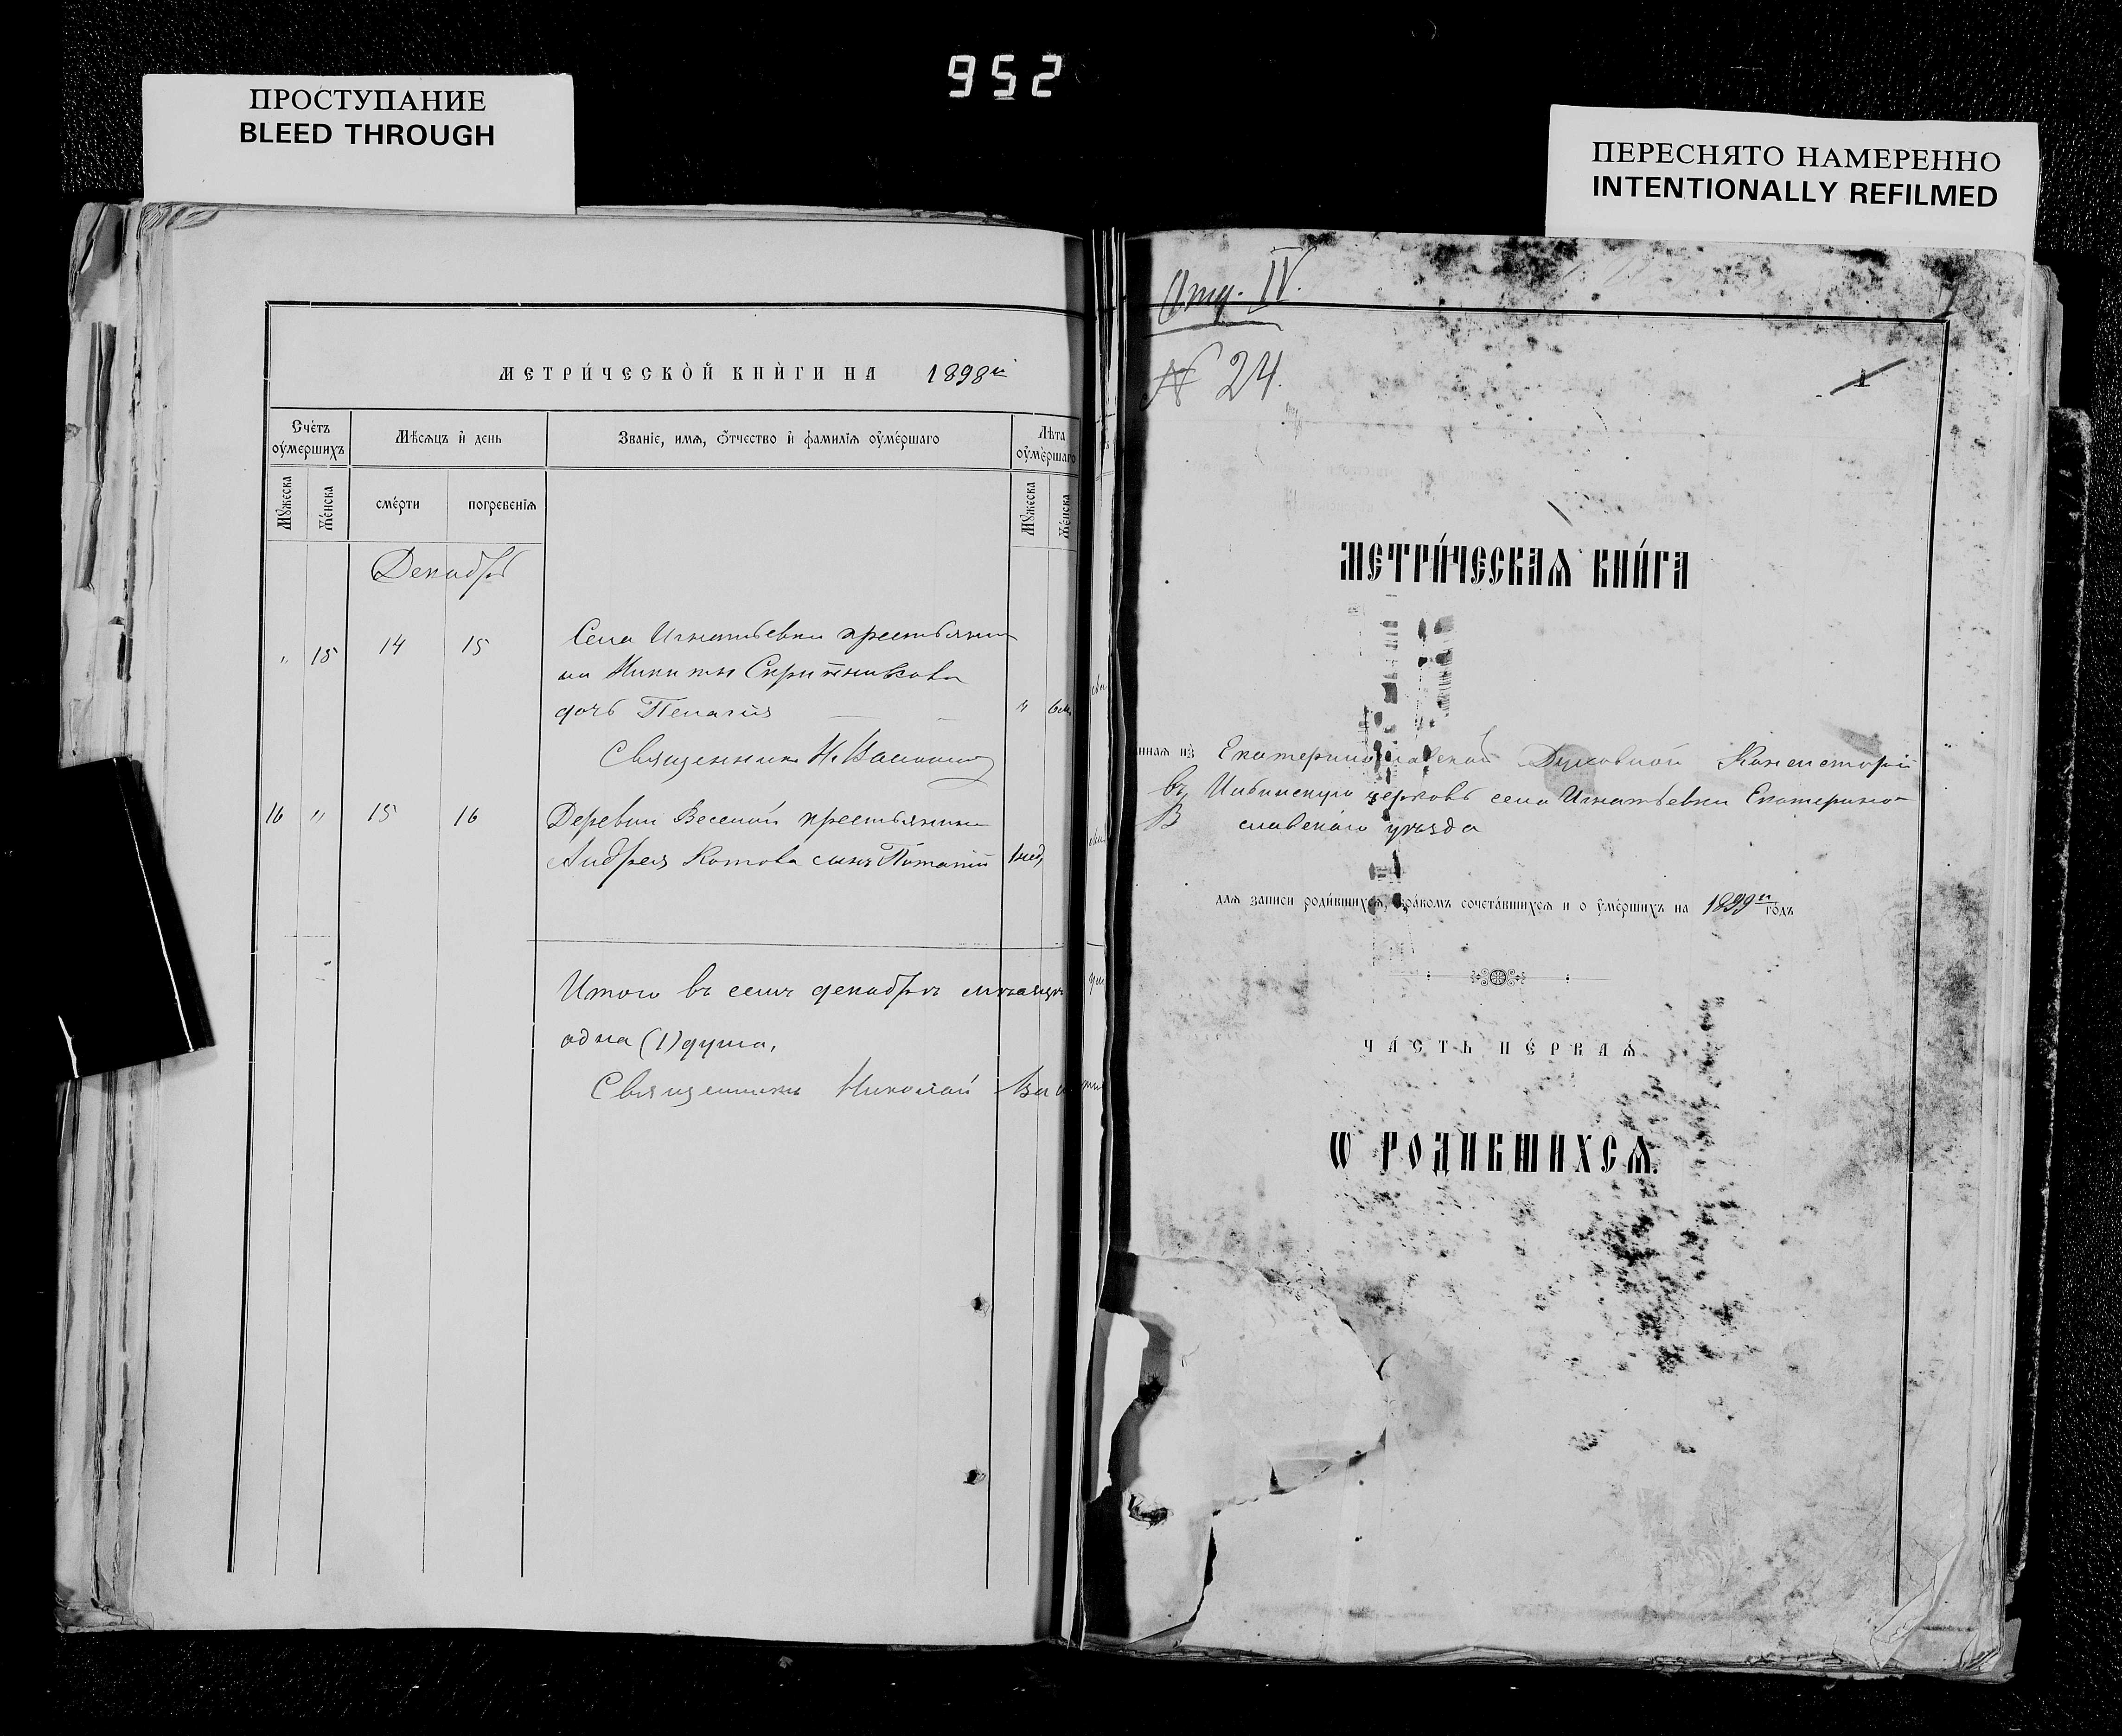 952
ПРОСТУПАНИЕ
BLEED THROUGH
ПЕРЕСНЯТО НАМЕРЕННО
INTENTIONALLY REFILMED
МЕТРИ́ЧЕСКОЙ КНИ́ГИ НА 1898й
Сче́тъ оу҆ме́ршихъ
Мѣсѧцъ и҆ день
Званїе, имѧ, ѻ҆́тчество и҆ фамилїѧ оу҆ме́ршаго
Лѣта оу҆ме́ршаго
Мꙋжеска
Же́нска
сме́рти
погребенїѧ
Мꙋжеска
Же́нска
Декабрь
" 15 14 15 Села Игнатьевки крестьяни
на Никиты Скрипникова
дочь Пелагия " 6 м.
Священникъ Н.
16 " 15 16 Деревни Веселой крестьянина
Андрея Котова сынъ Потапий 1 нед,
Итого въ семъ декабрѣ мѣсяцѣ
одна (1) душа,
Священникъ Николай
Отд. IV.
№ 24.
1
МЕТРИ́ЧЕСКАѦ КНИ́ГА
нная из̾ Екатеринославской Духовной Консисторіи
въ церковь села Игнатьевки Екатерино-
В славскаго уѣзда
длѧ записи роди́вшихсѧ, бра́комъ сочета́вшихсѧ и о оу҆ме́ршихъ на 1899й го́дъ
ЧА́СТЬ ПЕ́РВАѦ
Ѡ РОДИВШИХСѦ.